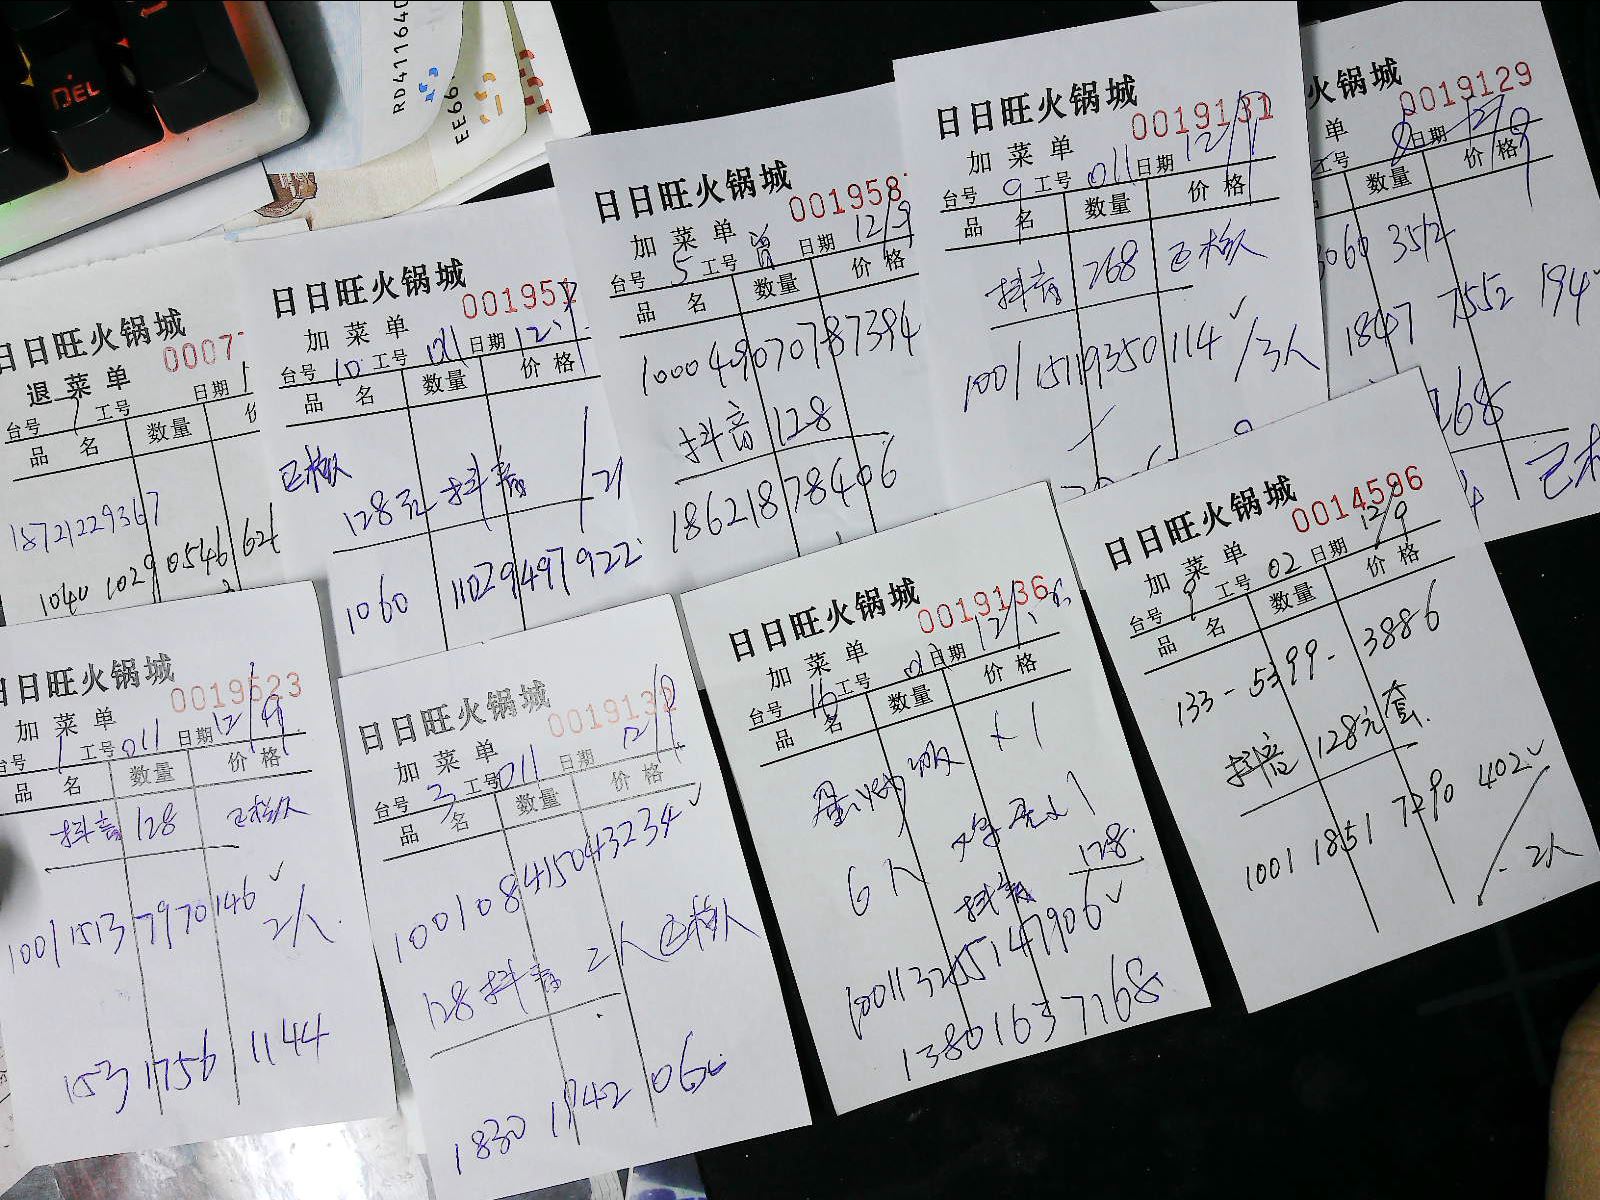 DEL
RD411640
EE66
日日旺火锅城
0007
退菜单
台号 1 工号 日期
品名 数量
18721229367
1040 1029 0546 626
日日旺火锅城
001951
加菜单
台号 10 工号 011 日期 12.
品名 数量 价格
已核认
128元 抖音
1060 11029497922
日日旺火锅城
001958
加菜单
台号 5 工号 曾 日期 12/9
品名 数量 价格
100049070787394
抖音 128
18621878406
日日旺火锅城
0019131
加菜单
台号 9 工号 011 日期 12/9
品名 数量 价格
抖音 268 已核认
1001 1511 9350 114 ✓
/3人
火锅城
0019129
单
工号 日期
数量 价格
3060 3512
1847 7552 194 ✓
268
日日旺火锅城
0019523
加菜单
台号 1 工号 011 日期 12/9
品名 数量 价格
抖音 128 已核认
1001 1513 7970 146 ✓
2人.
153 1756 1144
日日旺火锅城
0019132
加菜单
台号 3 工号 011 日期 12/9
品名 数量 价格
100108415043234 ✓
128 抖音 2人 已核认
1830 1942 066
日日旺火锅城
0019136
加菜单
台号 16 工号 日期 12/
品名 数量 价格
×1
6人
128
抖音
100113255147906 ✓
13801637768
日日旺火锅城
0014596
加菜单
台号 9 工号 02 日期 12/9
品名 数量 价格
133-5399-3886
抖音 128元 套.
1001 1851 7290 402 ✓
2人